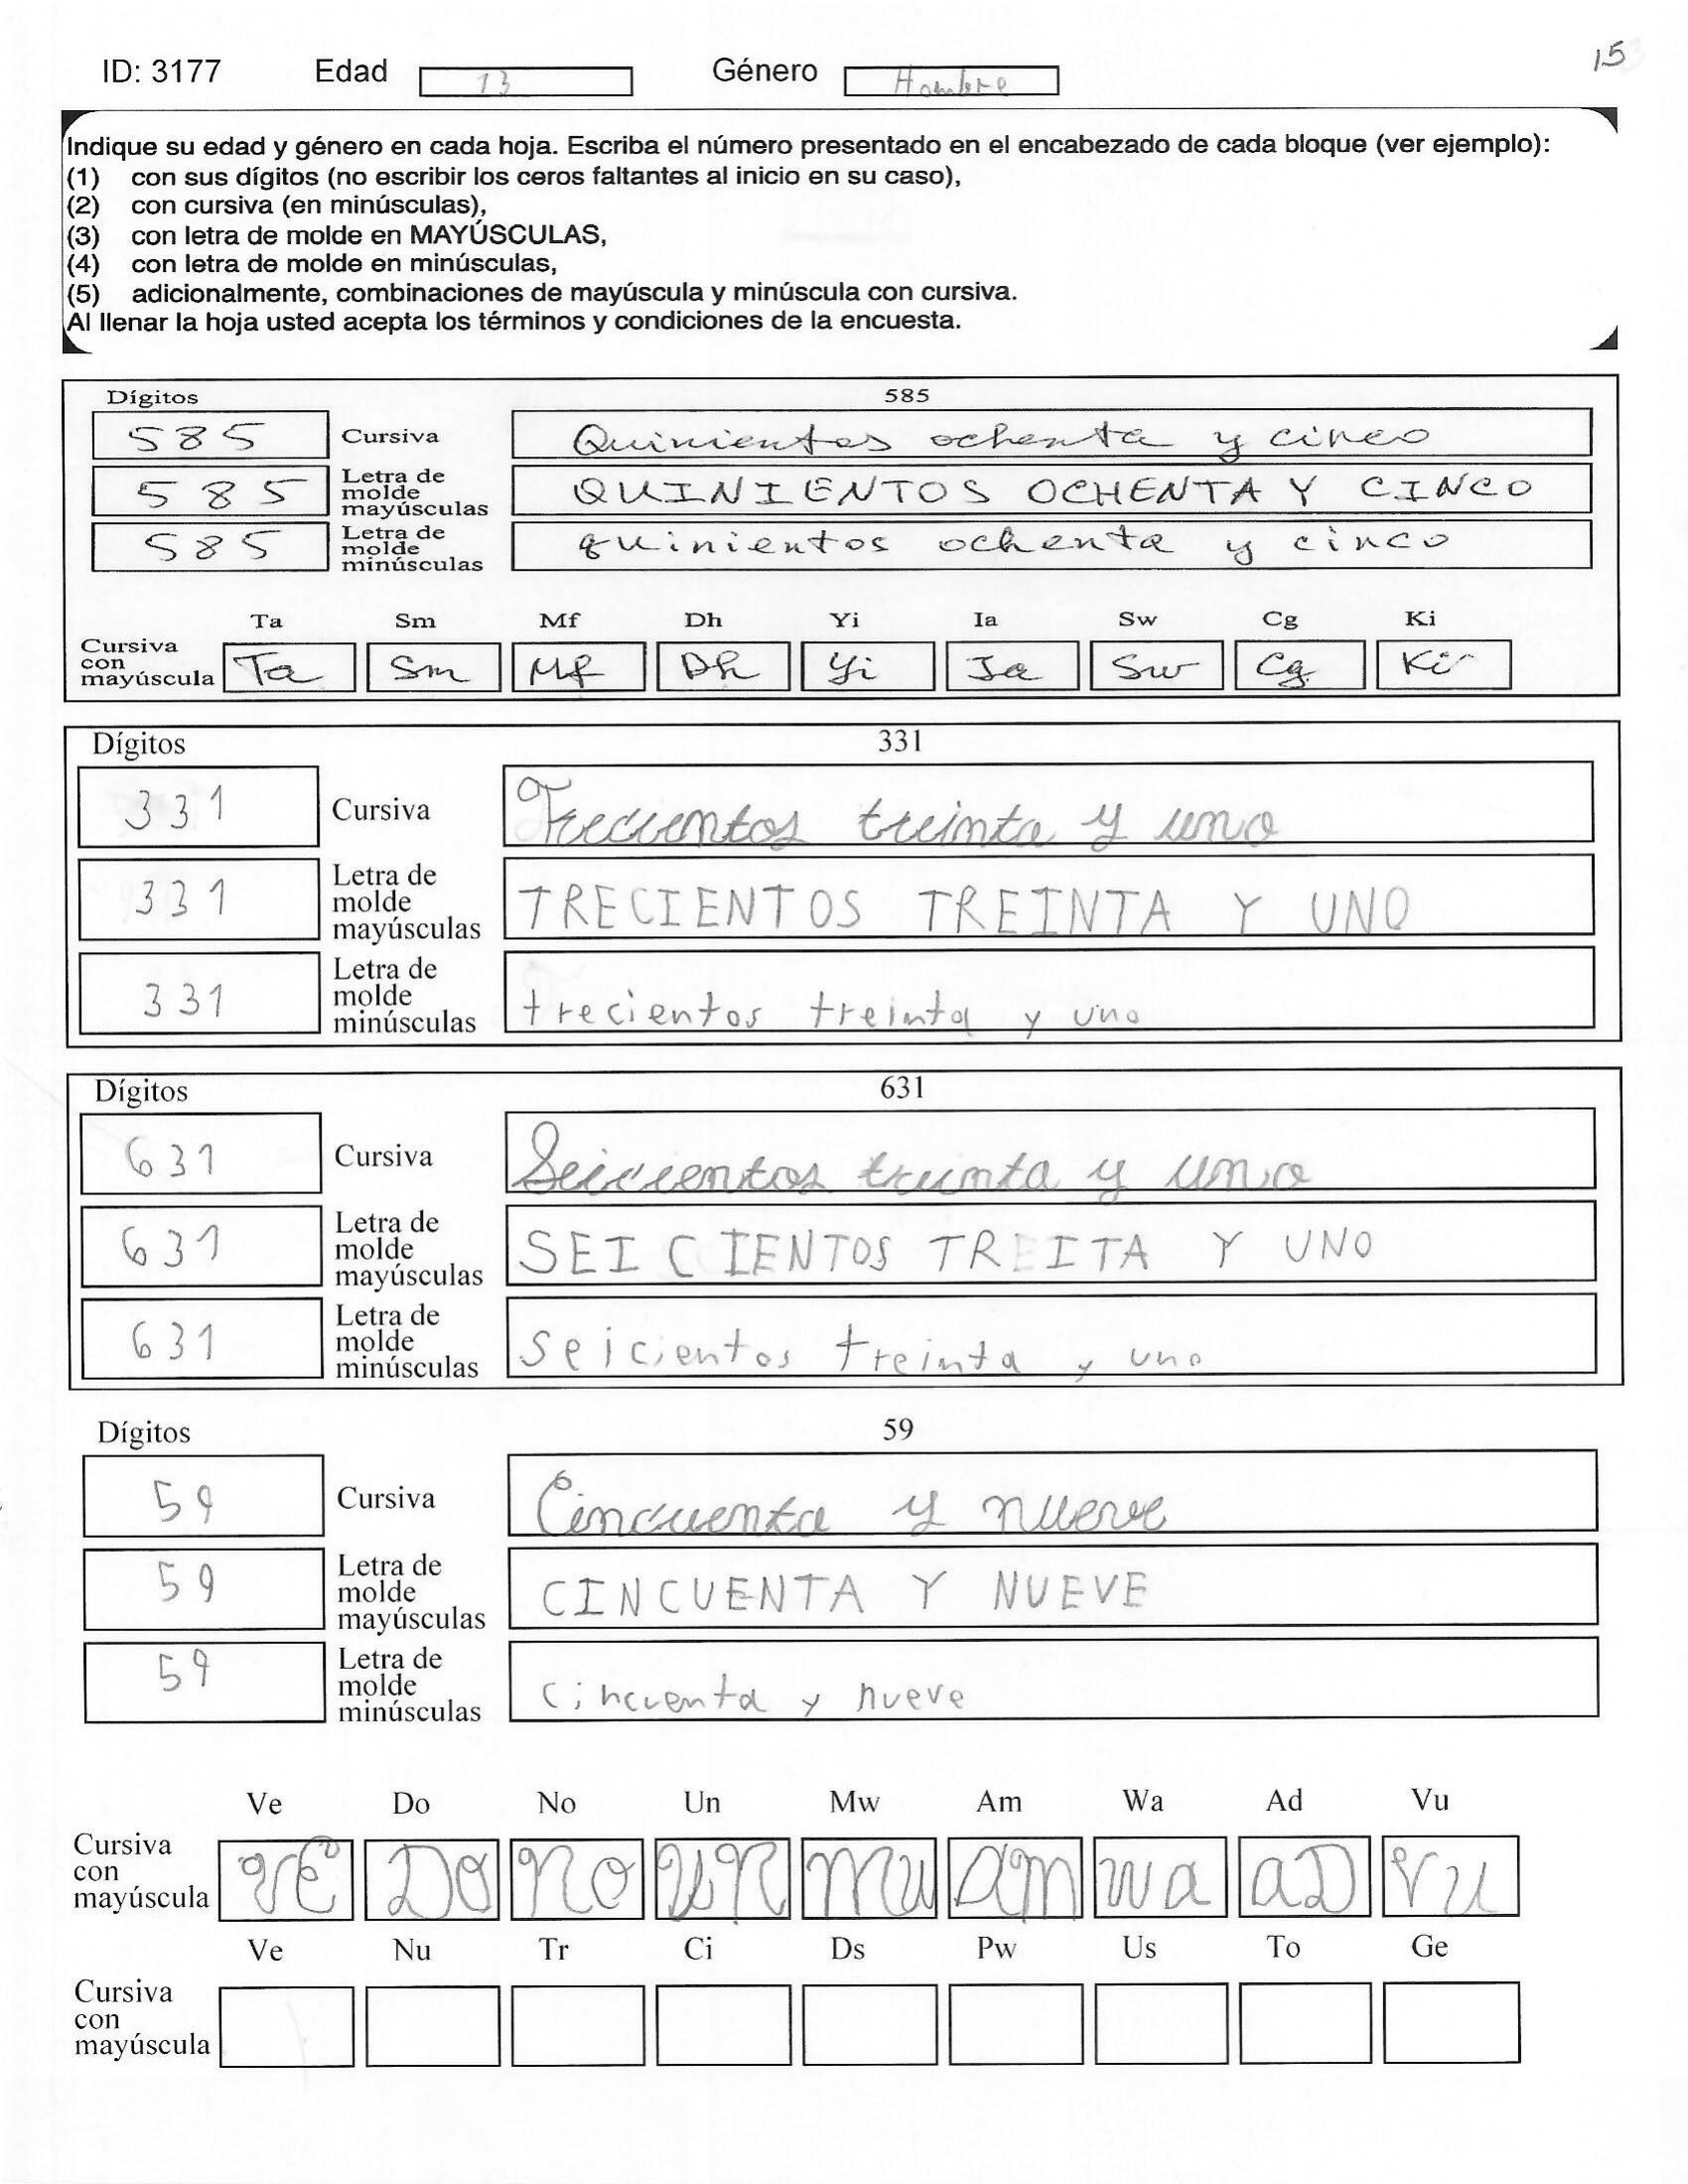 ID: 3177 Edad 13 Género Hombre 15
Indique su edad y género en cada hoja. Escriba el número presentado en el encabezado de cada bloque (ver ejemplo):
(1) con sus dígitos (no escribir los ceros faltantes al inicio en su caso),
(2) con cursiva (en minúsculas),
(3) con letra de molde en MAYÚSCULAS,
(4) con letra de molde en minúsculas,
(5) adicionalmente, combinaciones de mayúscula y minúscula con cursiva.
Al llenar la hoja usted acepta los términos y condiciones de la encuesta.
Dígitos 585
585 Cursiva Quinientos ochenta y cinco
585 Letra de molde mayúsculas QUINIENTOS OCHENTA Y CINCO
585 Letra de molde minúsculas quinientos ochenta y cinco
Ta Sm Mf Dh Yi Ia Sw Cg Ki
Cursiva con mayúscula Ta Sm Mf Dh Yi Ia Sw Cg Ki
Dígitos 331
331 Cursiva Trecientos treinta y uno
331 Letra de molde mayúsculas TRECIENTOS TREINTA Y UNO
331 Letra de molde minúsculas trecientos treinta y uno
Dígitos 631
631 Cursiva Seicientos treinta y uno
631 Letra de molde mayúsculas SEICIENTOS TREITA Y UNO
631 Letra de molde minúsculas seicientos treinta y uno
Dígitos 59
59 Cursiva Cincuenta y nueve
59 Letra de molde mayúsculas CINCUENTA Y NUEVE
59 Letra de molde minúsculas cincuenta y nueve
Ve Do No Un Mw Am Wa Ad Vu
Cursiva con mayúscula VE DO No UN Mu AM wa aD VU
Ve Nu Tr Ci Ds Pw Us To Ge
Cursiva con mayúscula